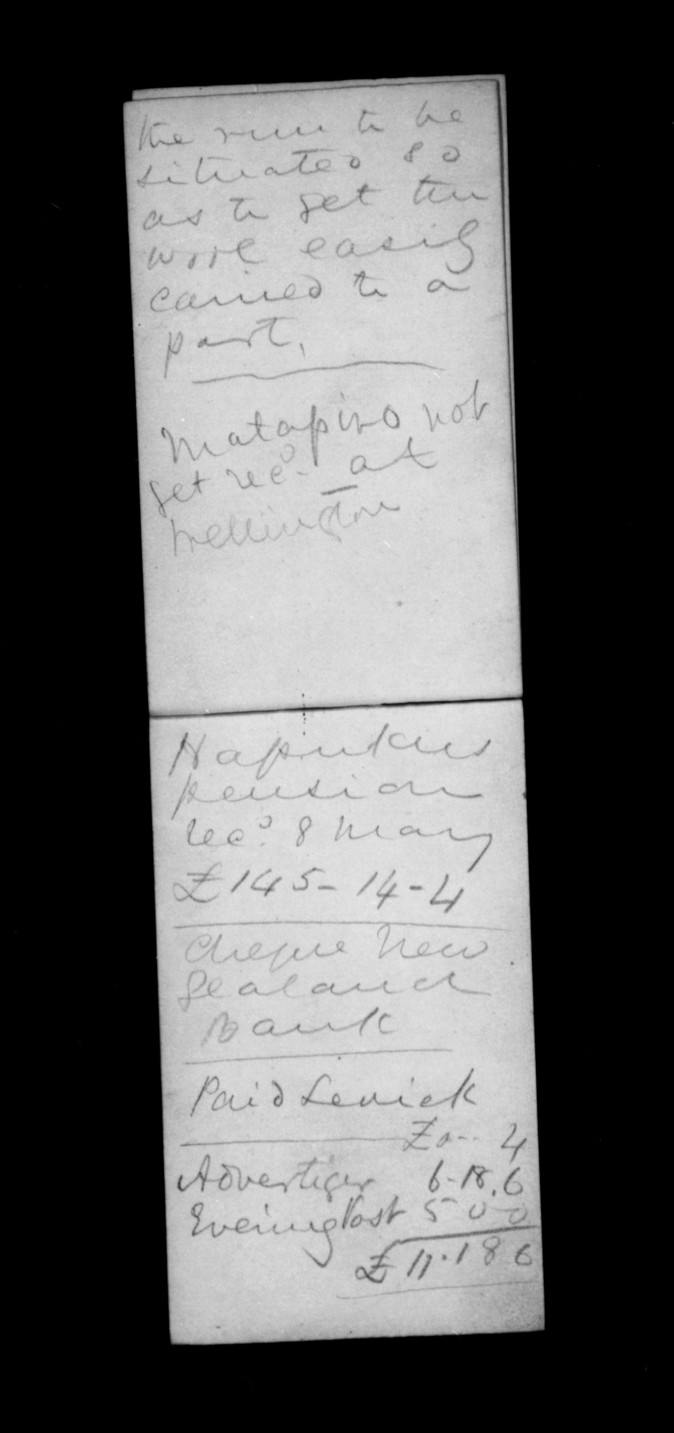 the run to be
situated so
as to get the
wool easily
carried to a
port.
Matapiro not
get recd. at
Wellington
Napukus
pension
recd. 8 May
£145-14-4
Cheque New
Zealand
Bank
Paid Levick
£0-- 4
Advertiser 6-18.6
Evening Post 5 0 0
£11.18 6